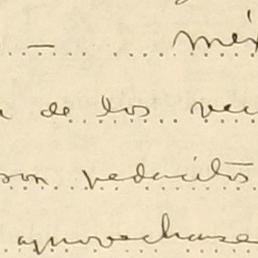 — méx
de los vec
son pedacitos
aprovechase